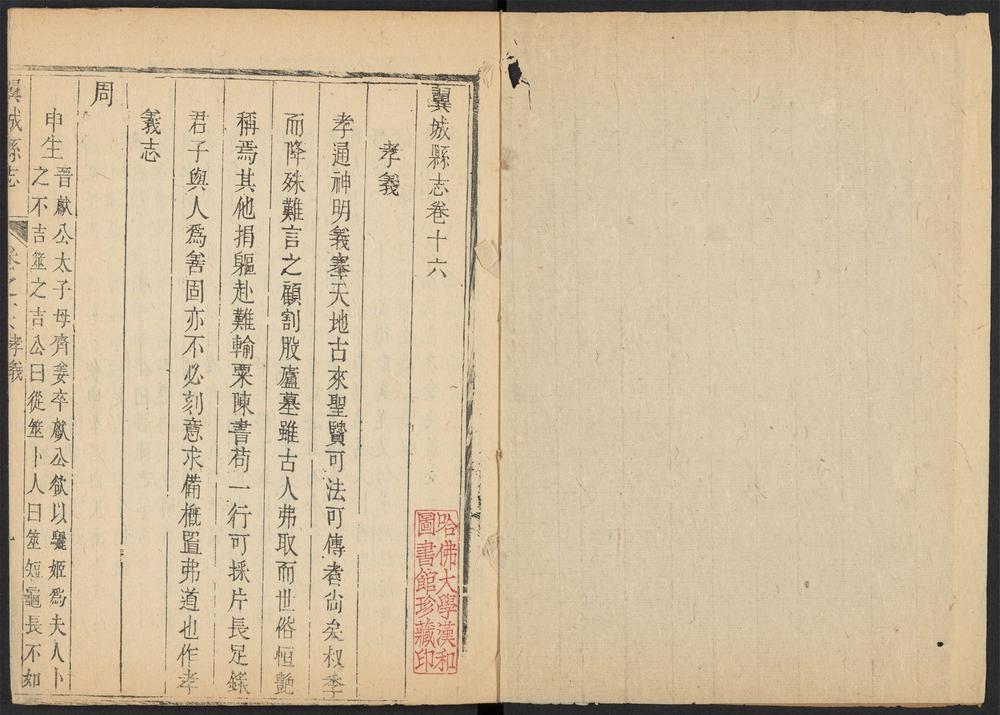 翼城縣志卷十六
孝義
孝通神明義塞天地古來聖賢可法可傳者尚矣叔季
而降殊難言之顧割股廬墓雖古人弗取而世俗恒艷
稱焉其他捐軀赴難輸粟陳書苟一行可採片長足錄
君子與人爲善固亦不必刻意求備槪置弗道也作孝
義志
周
申生
晉獻公太子母齊姜卒獻公欲以驪姬爲夫人卜
之不吉筮之吉公曰從筮卜人曰筮短龜長不如
翼城縣志
卷之
孝義
哈佛大學漢和
圖書館珍藏印